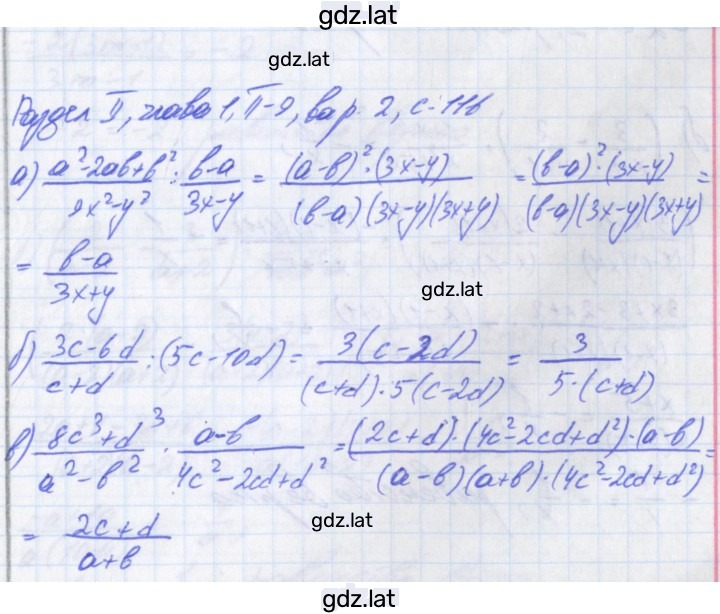 gdz.lat
gdz.lat
Раздел II, глава 1, П-9, вар. 2, с. 116
а) (a²-2ab+b²)/(9x²-y²) : (b-a)/(3x-y) = ((a-b)²·(3x-y))/((b-a)(3x-y)(3x+y)) = ((b-a)²·(3x-y))/((b-a)(3x-y)(3x+y)) =
= (b-a)/(3x+y)
gdz.lat
б) (3c-6d)/(c+d) : (5c-10d) = (3(c-2d))/((c+d)·5(c-2d)) = 3/(5·(c+d))
в) (8c³+d³)/(a²-b²) · (a-b)/(4c²-2cd+d²) = ((2c+d)·(4c²-2cd+d²)·(a-b))/((a-b)(a+b)·(4c²-2cd+d²)) =
= (2c+d)/(a+b)
gdz.lat
gdz.lat